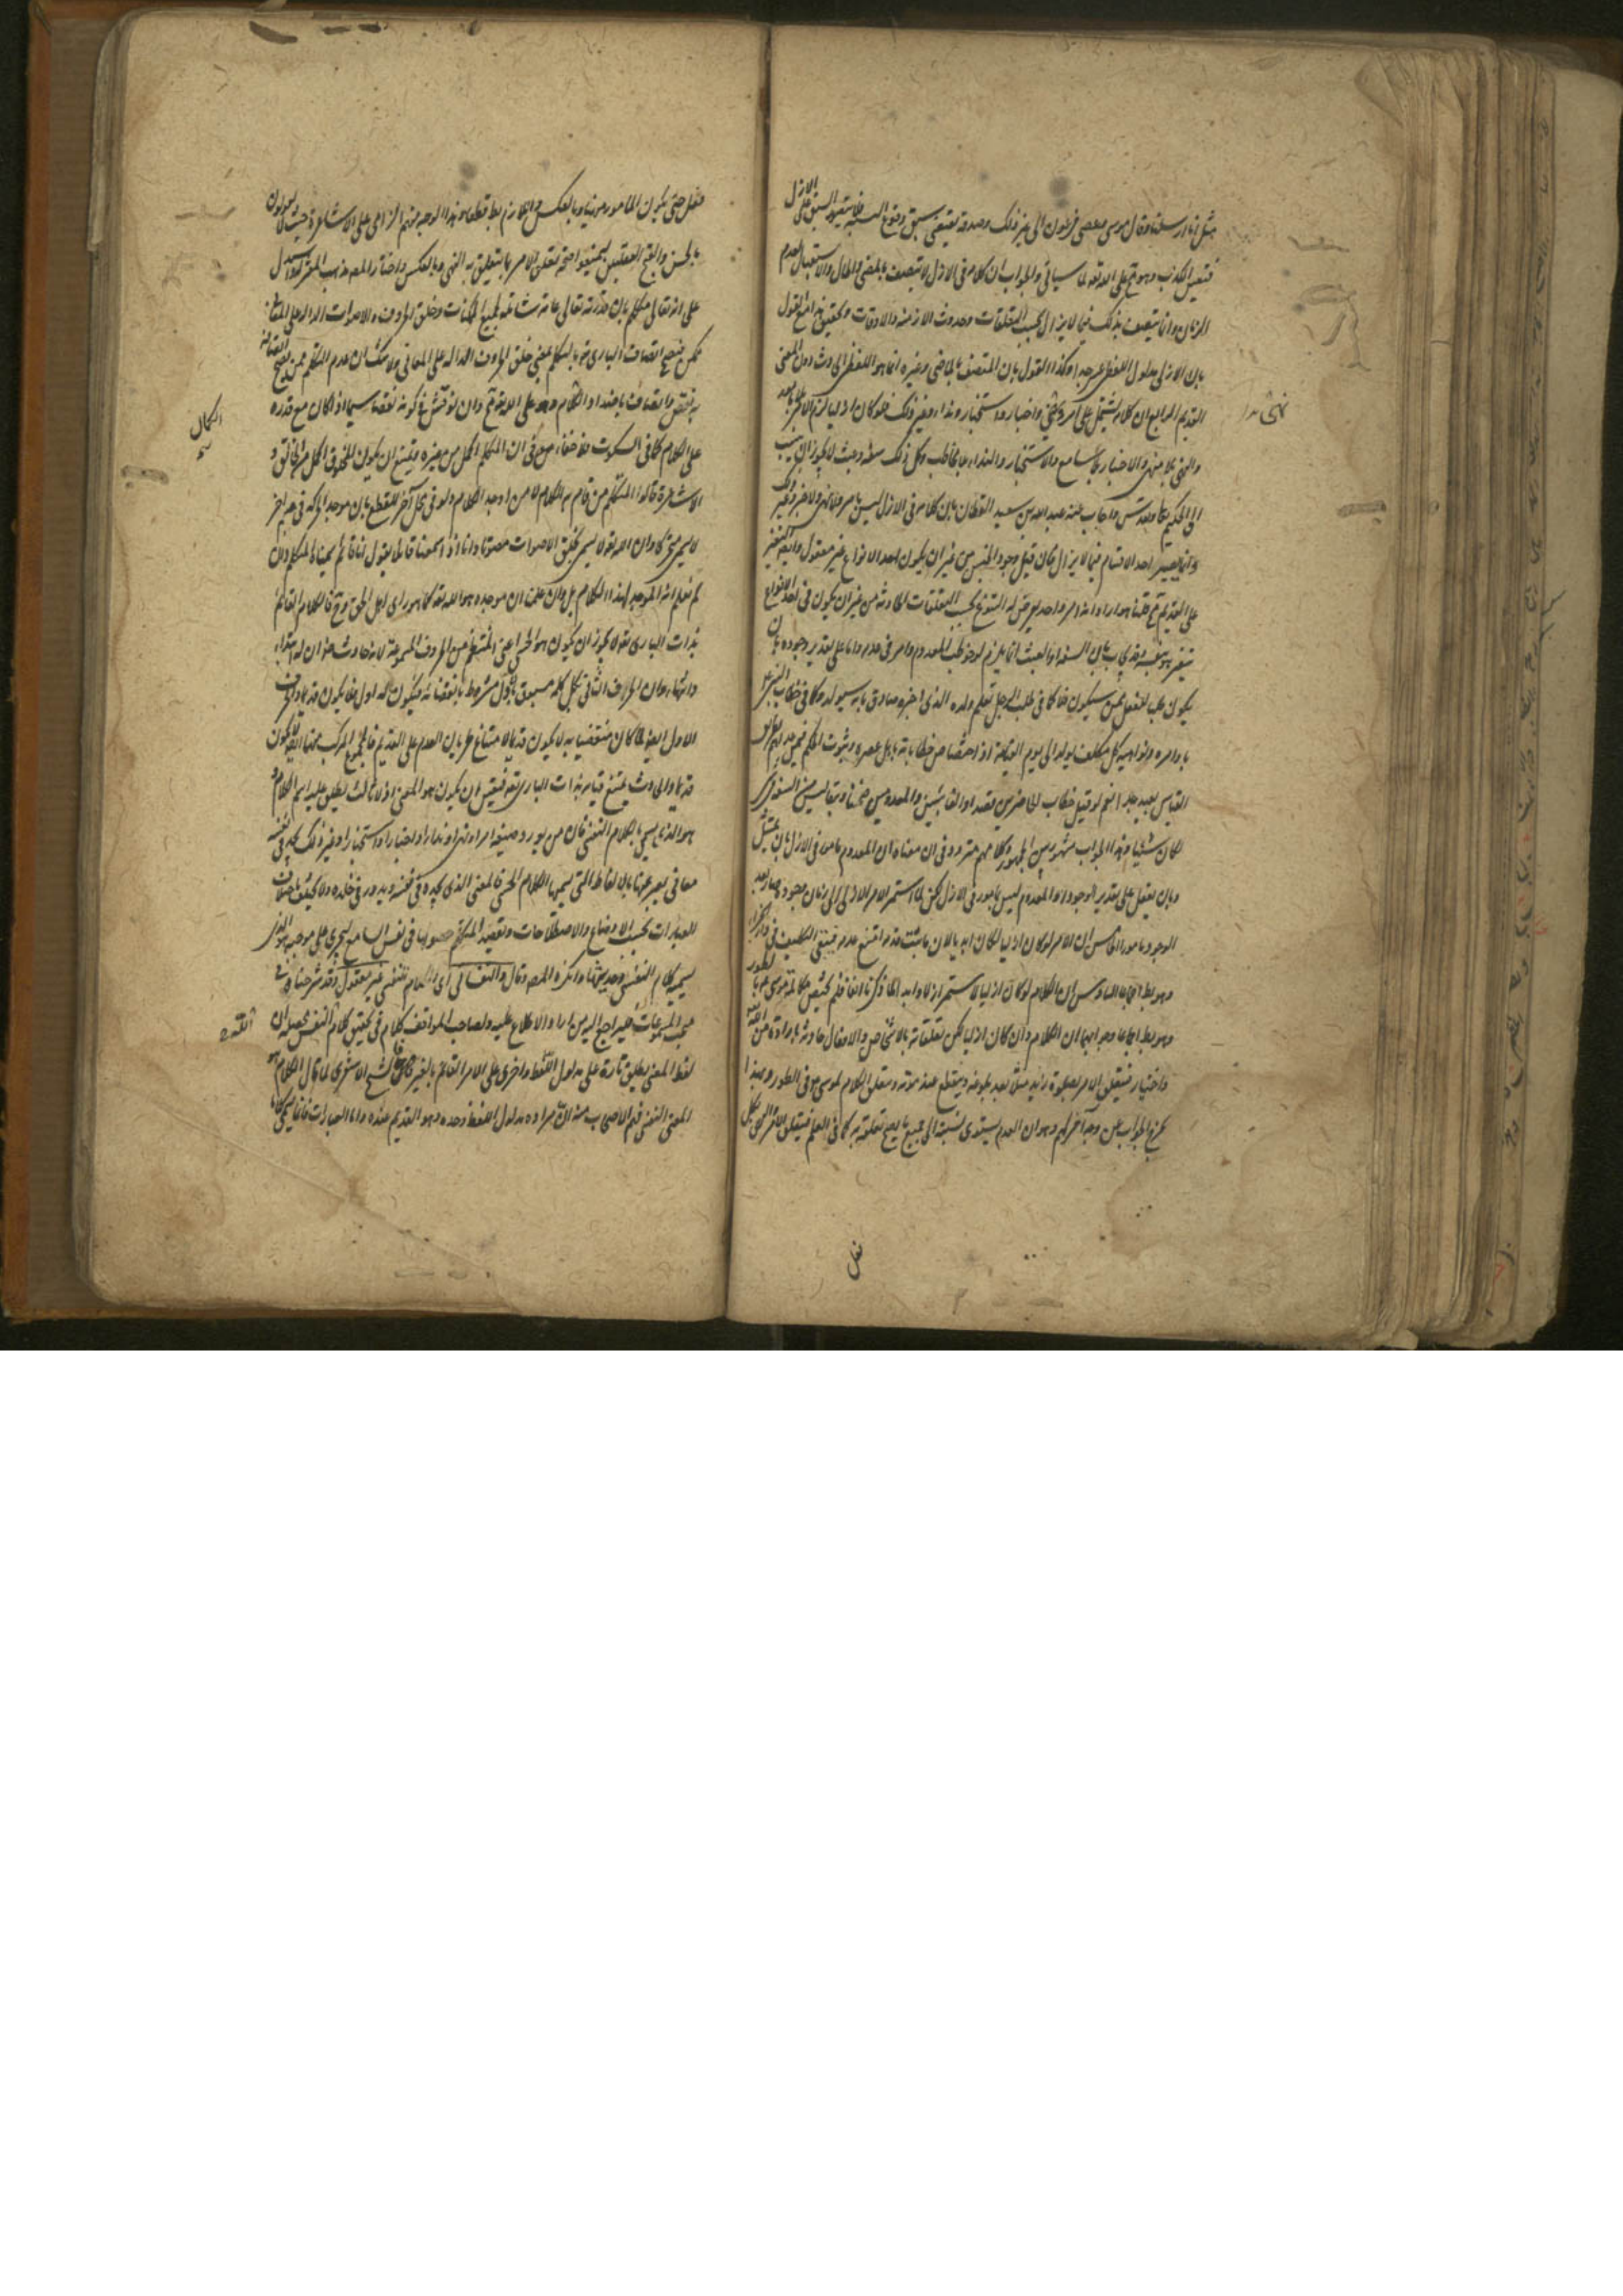 مثل انا ارسلنا وقال موسى وعصى فرعون الى غير ذلك وصدقه يقتضى سبق وقوع النسبة ولا يتصور السبق على الازل
فتعين الكذب وهو مح على الله تعه لما سياتى والجواب ان كلامه فى الازل لا يتصف بالمضى والحال والاستقبال لعدم
الزمان وانما يتصف بذلك فيما لا يزال بحسب التعلقات وحدوث الازمنة والاوقات وتحقيق هذا مع القول
بان الازلى مدلول اللفظى عسر جدا وكذا القول بان المتصف بالماضى وغيره انما هو اللفظ الحادث دون المعنى
القديم الرابع ان كلامه يشتمل على امر ونهى واخبار واستخبار ونداء وغير ذلك فلو كان ازليا لزم الامر بلا مامور
والنهى بلا منهى والاخبار بلا سامع والاستخبار والنداء بلا مخاطب وكل ذلك سفه وعبث لا يجوز ان ينسب
الى الحكيم تعا وتقدس واجاب عنه عبد الله بن سعيد القطان بان كلامه فى الازل ليس بامر ولا نهى ولا خبر وغير ذلك
وانما يصير احد الاقسام فيما لا يزال فان قيل وجود الجنس من غير ان يكون احد الانواع غير معقول وايضا التغير
على القديم مح قلنا هو اراد انه امر واحد يعرض له التنوع بحسب التعلقات الحادثة من غير ان يكون فى نفسه
يتغير هو بنفسه وقد يجاب بان السفه او العبث انما يلزم لو خوطب المعدوم وامر فى عدمه واما على تقدير وجوده بان
يكون طلب الفعل ممن سيكون فلا كما فى طلب الرجل تعلم ولده الذى اخبره صادق بانه سيولد وكما فى خطاب النبى عم
باوامره ونواهيه كل مكلف يولد الى يوم القيامة اذ اختصاص خطاباته باهل عصره وثبوت الحكم فيمن عداهم بطريق
القياس بعيد جدا نعم لو قيل خطاب الحاضرين قصدا والغائبين والمعدومين ضمنا وتبعا ليس من السفه فى
لكان شيئا وهذا الجواب مشهور بين الجمهور وكلامهم متردد فى ان معناه ان المعدوم مامور فى الازل بان يمتثل
وبان يفعل على تقدير الوجود او المعدوم ليس بمامور فى الازل لكن لما استمر الامر الازلى الى زمان وجوده صار بعد
الوجود مامورا الخامس ان الامر لو كان ازليا لكان ابديا لان ما ثبت قدمه امتنع عدمه فيبقى التكليف فى دار الجزاء
وهو بط اجماعا السادس ان الكلام لو كان ازليا لاستمر ازلا وابدا لما ذكرنا انفا فلم يختص مكالمة موسى عم بالطور
وهو بط اجماعا وجوابهما ان الكلام وان كان ازليا لكن تعلقاته بالاشخاص والافعال حادثة بارادة من الله تعه
واختياره فيتعلق الامر بصلوة زيد مثلا بعد بلوغه وينقطع عند موته ويتعلق الكلام لموسى هو فى الطور وبهذا
يخرج الجواب عن وجه آخر لهم وهو ان القدم يستوى نسبته الى جميع ما يصح تعلقه به كما فى العلم فيتعلق الامر والنهى بكل
فعل
فعل حتى يكون المامور منهيا وبالعكس واللازم بط قطعا وهذا الوجه منهم الزامى على الاشاعرة حيث لا يقولون
بالحسن والقبح العقليين ليمنعوا صحة تعلق الامر بما يتعلق به النهى وبالعكس واختار المصه مذهب المعتزلة واستدل
على انه تعالى متكلم بان قدرته تعالى عامة شاملة لجميع الممكنات وخلق الحروف والاصوات الدالة على المعانى
ممكن فيصح اتصاف البارى تع بالتكلم بمعنى خلق الحروف الدالة على المعانى ولا شك ان عدم التكلم ممن يصح اتصافه
به نقص واتصاف باضداد الكلام وهو على الله تعه مح وان نوقش فى كونه نقصا سيما اذا كان مع قدرة
على الكلام كما فى السكوت فلا خفاء فى ان المتكلم اكمل من غيره ويمتنع ان يكون المخلوق اكمل من الخالق و
الكمال
الاشاعرة قالوا المتكلم من قام به الكلام لا من اوجد الكلام ولو فى محل آخر للقطع بان موجد الحركة فى جسم اخر
لا يسمى متحركا وان الله تعه لا يسمى بخلق الاصوات مصوتا وانا اذا سمعنا قائلا يقول انا قائم نسميه متكلما وان
لم نعلم انه الموجد لهذا الكلام بل وان علمنا ان موجده هو الله تعه كما هو راى اهل الحق وح فالكلام القائم
بذات البارى تعه لا يجوز ان يكون هو الحسى اعنى المنتظم من الحروف المسموعة لانه حادث ضرورة ان له ابتداء
وانتهاء وان الحرف الثانى من كل كلمة مسبوق بالاول مشروط بانقضائه فيكون له اول فلا يكون قديما والحرف
الاول ايضا لما كان منقضيا به لا يكون قديما لامتناع طريان العدم على القديم فالمجموع المركب منهما ايضا لا يكون
قديما والحادث يمتنع قيامه بذات البارى تعه فتعين ان يكون هو المعنى اذ لا ثالث يطلق عليه اسم الكلام
وهو الذى يسمى بالكلام النفسى فان من يورد صيغة امر او نهى او نداء او اخبار او استخبار او غير ذلك يجد فى نفسه
معانى يعبر عنها بالالفاظ التى يسميها الكلام الحسى فالمعنى الذى يجده فى نفسه ويدور فى خلده ولا يختلف باختلاف
العبارات بحسب الاوضاع والاصطلاحات ويقصد المتكلم حصولها فى نفس السامع ليجرى على موجبه هو الذى
يسميه كلام النفس وحديثها وانكره المصه وقال والنفسانى اى الكلام النفسى غير معقول وقد شرحنا فى
لفظ المعنى يطلق تارة على مدلول اللفظ واخرى على الامر القائم بالغير فالشيخ الاشعرى لما قال الكلام هو
المعنى النفسى فهم الاصحاب منه ان مراده مدلول اللفظ وحده وهو القديم عنده واما العبارات فانما يسمى كلاما